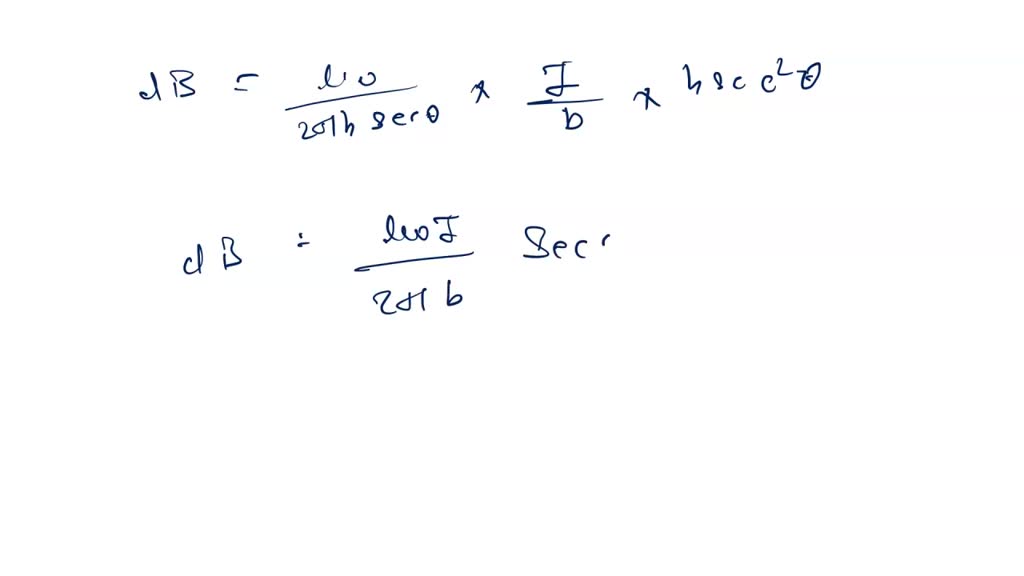 dB = μ0 / 2πh secθ × I / b × h sec²θ
dB = μ0I / 2πb Sec